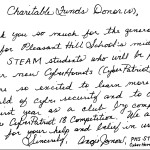 Charitable Funds Donor(s),
you so much for the genero
for Pleasant Hill School's mid
STEAM students who will be p
new CyberHawks (CyberPatriot
so excited to learn more
of cyber security and to
first year as a club by comp
CyberPatriot 18 Competition. We a
for your help and belief in us
Sincerely,
PHS ST
Cyber Haw